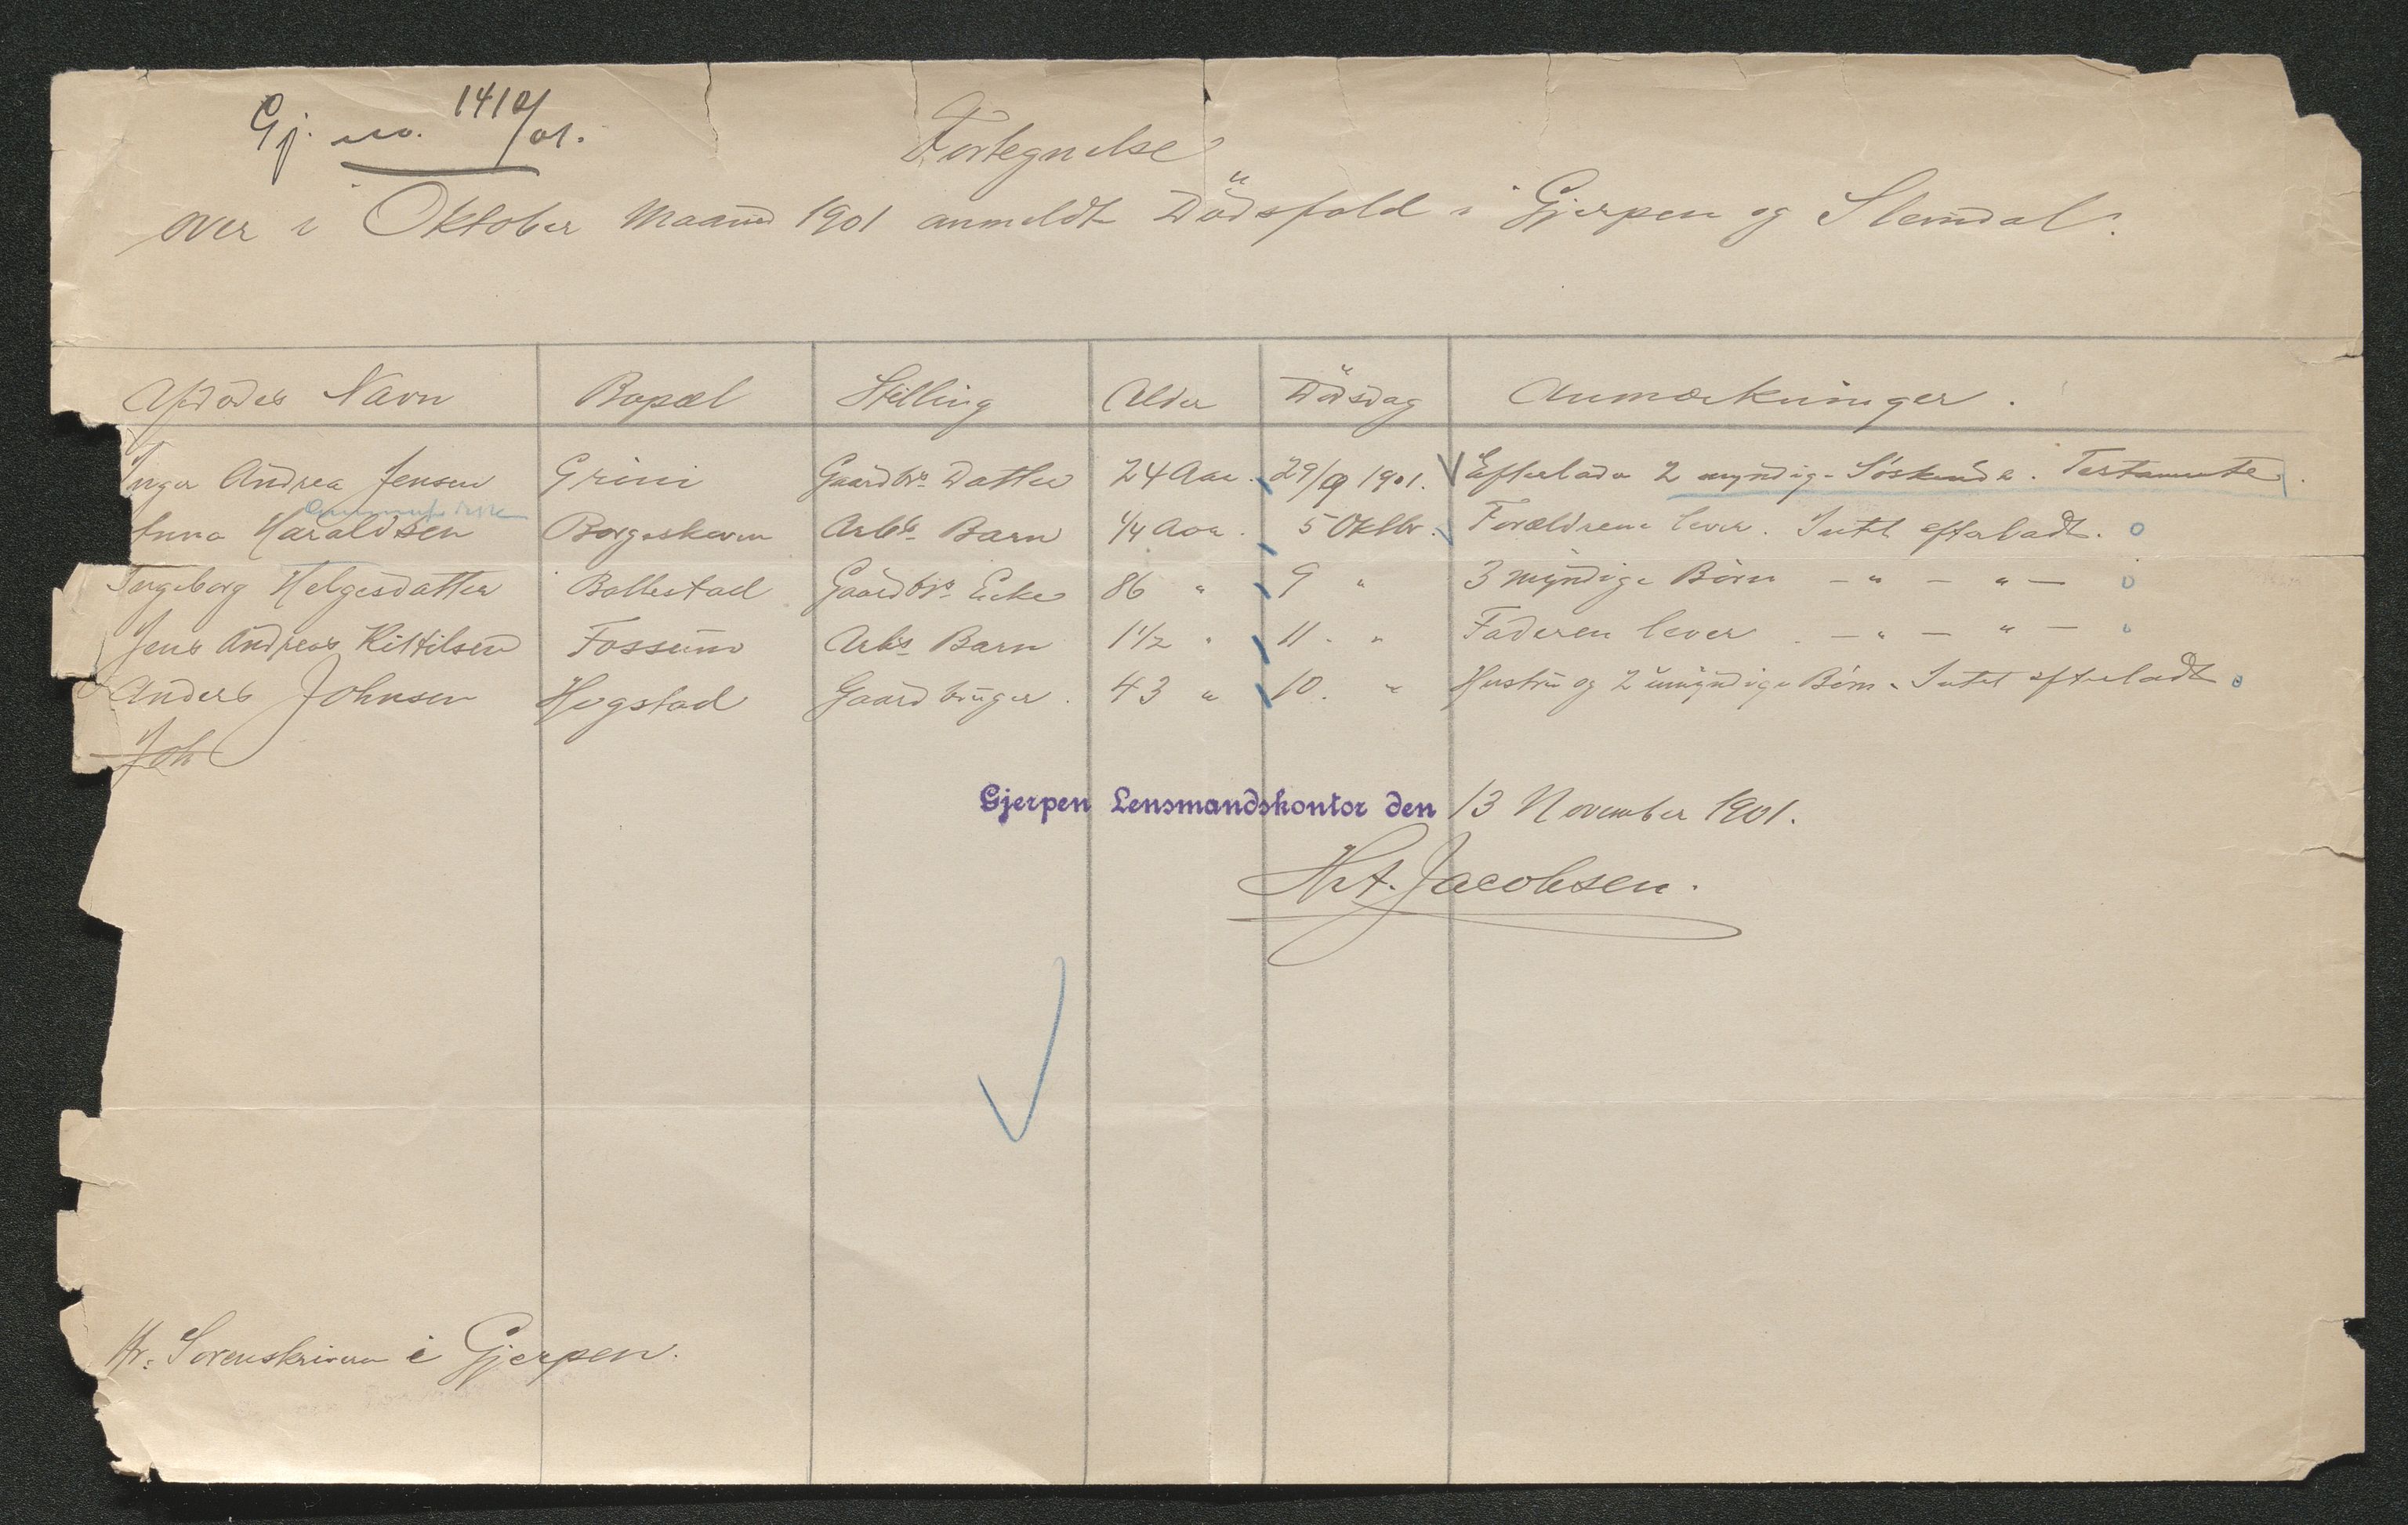 Gj. no. 1410/01.
Fortegnelse
over i Oktober Maaned 1901 anmeldt Dödsfald i Gjerpen og Slemdal.
Afdödes Navn Bopæl Stilling Alder Dödsdag Anmærkninger.
Inger Andrea Jensen Grini Gaardbrs Datter 24 Aar. 29/9 1901. Efterlader 2 myndige Söskende. Testamente.
Anna Haraldsen Borgeskoven Arbs Barn 1/4 Aar. 5 Oktbr. Forældrene lever. Intet efterladt. o
Ingeborg Helgesdatter Bollestad Gaardbrs Enke 86 " 9 " 3 myndige Börn - " - " - o
Jens Andreas Kittilsen Fossum Arbs Barn 1 1/2 " 11. " Faderen lever. - " - " - o
Anders Johnsen Hogstad Gaardbruger. 43 " 10. " Hustru og 2 umyndige Börn. Intet efterladt o
Joh
Gjerpen Lensmandskontor den 13 November 1901.
Jacobsen.
Hr. Sorenskriveren i Gjerpen.